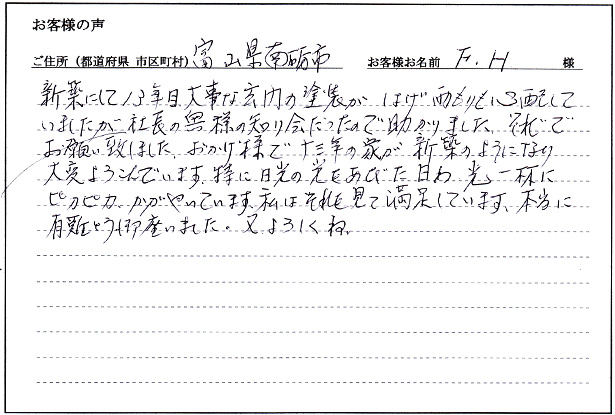 お客様の声
ご住所（都道府県 市区町村）富山県南砺市 お客様お名前 F.H 様
新築にして13年目大事な玄関の塗装が はげ雨もりも心配して
いましたが社長の奥様の知り合だったので助かりました。それで
お願い致しました。おかげ様で十三年の家が新築のようになり
大変よろこんでいます。特に日光の光をあびた日わ 光一杯に
ピカピカ かがやいています。私はそれを見て満足しています。本当に
有難とう御座いました。又よろしくね。